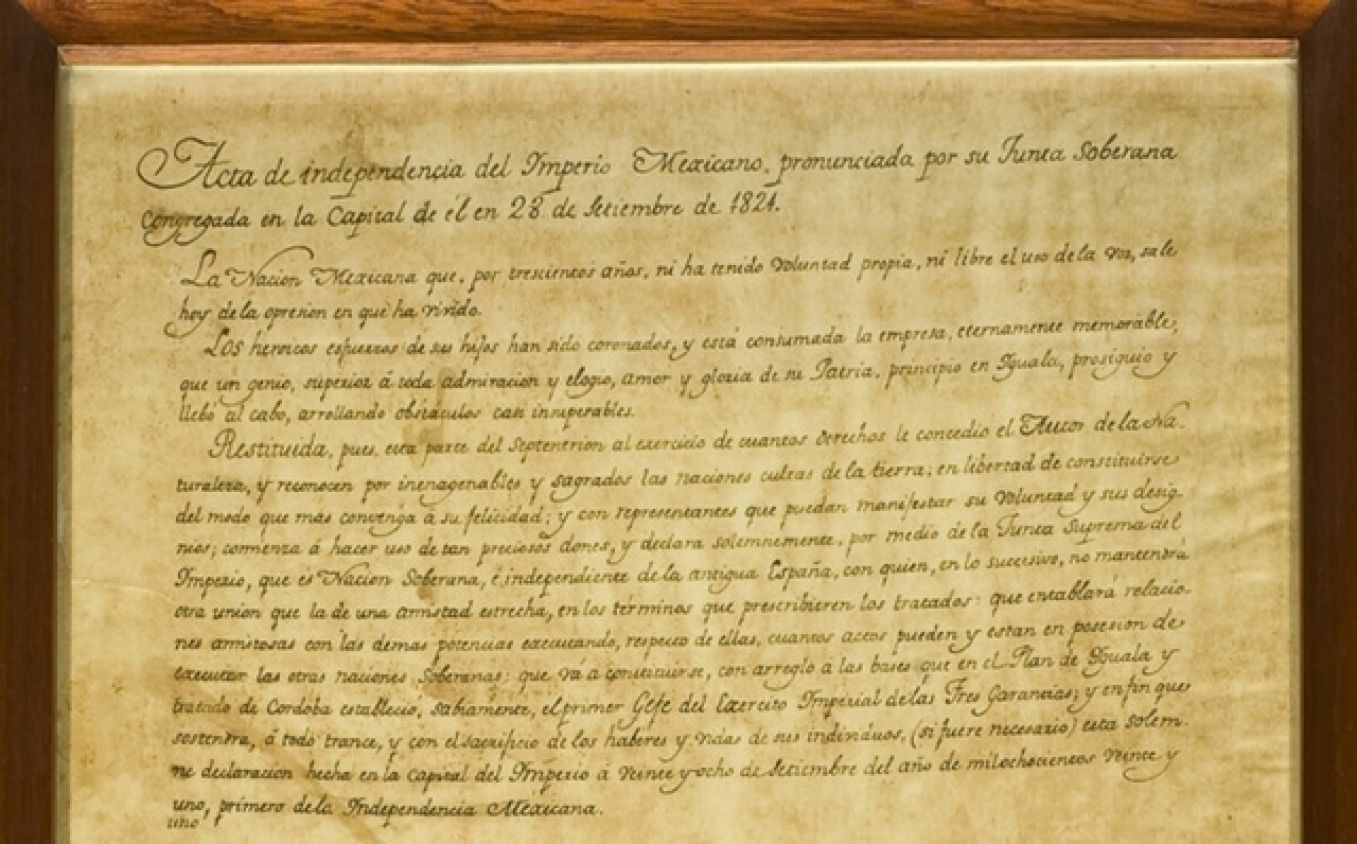 Acta de independencia del Imperio Mexicano, pronunciada por su Junta Soberana
Congregada en la Capital de él en 28 de Setiembre de 1821.
La Nacion Mexicana que, por trescientos años, ni ha tenido voluntad propia, ni libre el uso de la voz, sale
hoy de la opresion en que ha vivido.
Los heroicos esfuerzos de sus hijos han sido coronados, y está consumada la empresa, eternamente memorable,
que un genio, superior á toda admiracion y elogio, amor y gloria de su Patria, principió en Iguala, prosiguio y
llebó al cabo, arrollando obstáculos casi insuperables.
Restituida, pues, esta parte del Septentrion al exercicio de cuantos derechos le concedió el Autor de la Na-
turaleza, y reconocen por inenagenables y sagrados las naciones cultas de la tierra; en libertad de constituirse
del modo que mas convenga á su felicidad; y con representantes que puedan manifestar su voluntad y sus desig-
nios; comienza á hacer uso de tan preciosos dones, y declara solemnemente, por medio de la Junta Suprema del
Imperio, que es Nacion Soberana, é independiente de la antigua España, con quien, en lo sucesivo, no mantendrá
otra union que la de una amistad estrecha, en los términos que prescribieren los tratados: que entablará relacio-
nes amistosas con las demas potencias executando, respecto de ellas, cuantos actos pueden y estan en posesion de
executar las otras naciones Soberanas: que vá á constituirse, con arreglo á las bases que en el Plan de Iguala y
tratado de Cordoba estableció, sabiamente, el primer Gefe del Exercito Imperial de las Tres Garantias; y en fin que
sostendra, á todo trance, y con el sacrificio de los haberes y vidas de sus individuos, (si fuere necesario) esta solem-
ne declaracion hecha en la Capital del Imperio á veinte y ocho de Setiembre del año de mil ochocientos veinte y
uno, primero de la Independencia Mexicana.
uno